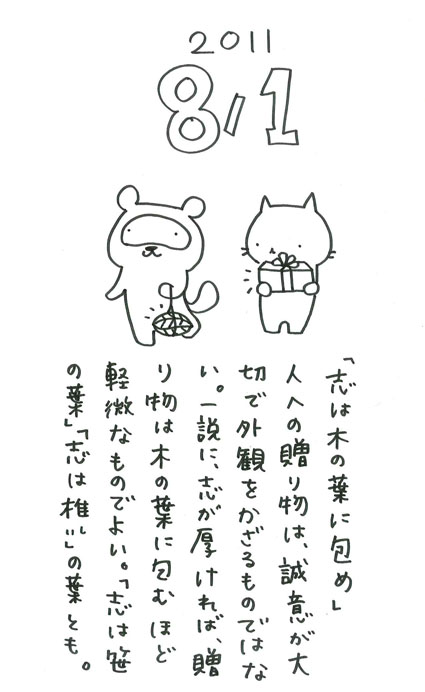 2011
8/1
「志は木の葉に包め」
人への贈り物は、誠意が大
切で外観をかざるものではな
い。一説に、志が厚ければ、贈
り物は木の葉に包むほど
軽微なものでよい。「志は笹
の葉」「志は椎しいの葉」とも。